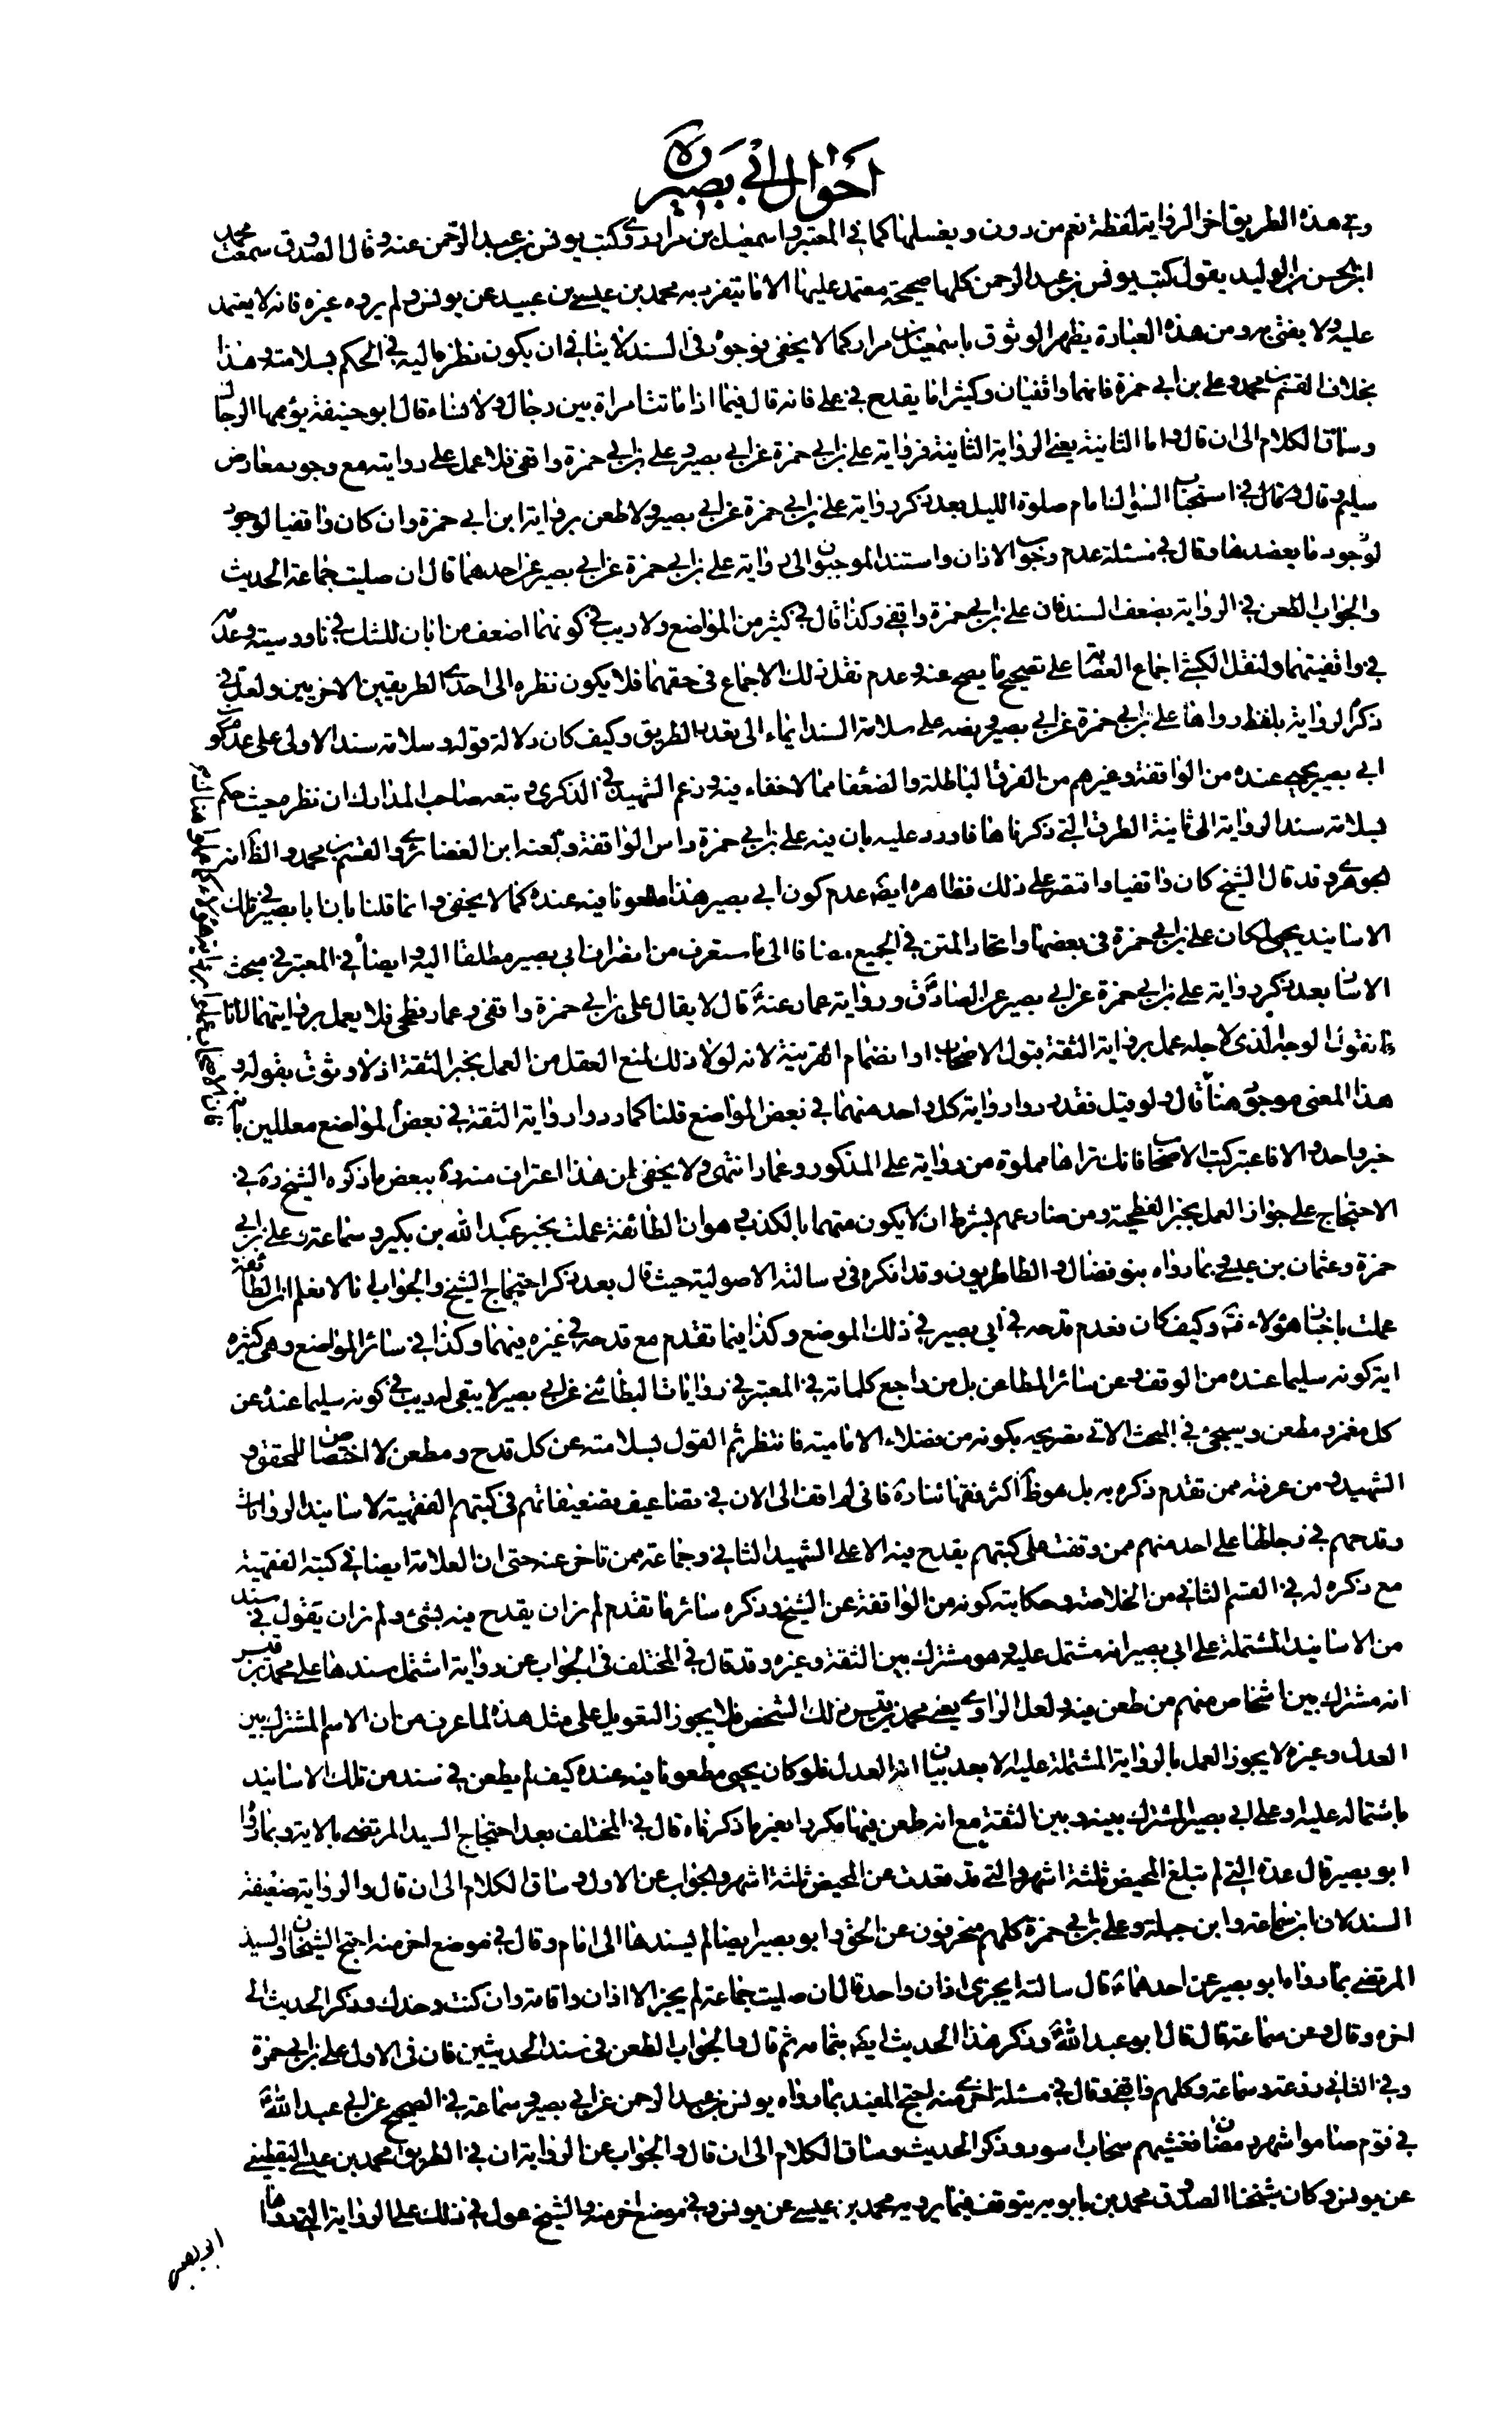 احوال ابي بصير
وفي هذه الطريق اخر الرواية لفظة نعم من دون ويغسلها كما في المعتبر واسمعيل بن مرار روى كتب يونس بن عبد الرحمن عنه وقال الصدوق سمعت محمد
ابن الحسن بن الوليد يقول كتب يونس بن عبد الرحمن كلها صحيحة معتمد عليها الا ما يتفرد به محمد بن عيسى بن عبيد عن يونس ولم يروه غيره فانه لا يعتمد
عليه ولا يفتى به ومن هذه العبارة يظهر الوثوق باسمعيل بن مرار كما لا يخفى فوجوده في السند لا ينافي ان يكون نظره اليه في الحكم بسلامته وهذا
بخلاف القسم بن محمد وعلي بن ابي حمزة فانهما واقفيان وكثيرا ما يقدح في علي فانه قال فيما اذا ماتت امراة بين رجال ولا نساء قال ابو حنيفة يؤممها الرجال
وساق الكلام الى ان قال واما الثانية يعني الرواية الثانية فرواية علي بن ابي حمزة عن ابي بصير وعلي بن ابي حمزة واقفي فلا عمل على روايته مع وجود معارض
سليم وقال وقال في استحباب السؤال امام صلوة الليل بعد ذكر رواية علي بن ابي حمزة عن ابي بصير ولا طعن برواية ابن ابي حمزة وان كان واقفيا لوجود
لوجود ما يعضدها وقال في مسئلة عدم وجوب الاذان واستند الموجبون الى رواية علي بن ابي حمزة عن ابي بصير عن احدهما قال ان صليت جماعة الحديث
والجواب الطعن في الرواية بضعف السند فان علي بن ابي حمزة واقفي وكذا قال في كثير من المواضع ولا ريب في كونهما اضعف من ابان للشك في ناووسيته وعدمه
في واقفيتهما ولنقل الكشي اجماع العصابة على تصحيح ما يصح عنه وعدم نقل ذلك الاجماع في حقهما فلا يكون نظره الى احدى الطريقين الاخريين ولعل في
ذكر الرواية بلفظ رواها علي بن ابي حمزة عن ابي بصير ونصه على سلامة السند ايماء الى تعدد الطريق وكيف كان دلالة قوله وسلامة سند الاولى على عدم كون
ابي بصير يحيى عنده من الواقفة وغيرهم من الفرق الباطلة والضعفا مما لا خفاء فيه وزعم الشهيد في الذكرى وتبعه صاحب المدارك ان نظره حيث حكم
بسلامة سند الرواية الى ثانية الطرق التي ذكرناها فاورد عليه بان فيه علي بن ابي حمزة راس الواقفة ولعنه ابن الغضائري والقسم بن محمد والظاهر انه
الجوهري وقد قال الشيخ كان واقفيا واقتصر على ذلك فظاهره ايضا عدم كون ابي بصير هذا مطعونا فيه عنده كما لا يخفى وانما قلنا بان ابا بصير في تلك
الاسانيد يحيى لمكان علي بن ابي حمزة في بعضها واتحاد المتن في الجميع مضافا الى ما ستعرف من انصراف ابي بصير مطلقا اليه وايضا في المعتبر في مبحث
الاسئار بعد ذكر رواية علي بن ابي حمزة عن ابي بصير عن الصادق ورواية عمار عنه قال لا يقال علي بن ابي حمزة واقفي وعمار فطحي فلا يعمل بروايتهما لانا
نقول الوجه الذي لاجله عمل برواية الثقة قبول الاصحاب او انضمام القرينة لانه لولا ذلك لمنع العقل من العمل بخبر الثقة اذ لا وثوق بقوله و
هذا المعنى موجود هنا قال ولو قيل فقد ردوا رواية كل واحد منهما في بعض المواضع قلنا كما ردوا رواية الثقة في بعض المواضع معللين بانه
خبر واحد والا فاعتبر كتب الاصحاب فانك تراها مملوة من رواية علي المذكور وعمار انتهى ولا يخفى ان هذا اعتراف منه ببعض ما ذكره الشيخ ره في
الاحتجاج على جواز العمل بخبر الفطحية ومن ضارعهم بشرط ان لا يكون متهما بالكذب وهو ان الطائفة عملت بخبر عبد الله بن بكير وسماعة وعلي بن ابي
حمزة وعثمان بن عيسى وبما رواه بنو فضال والطاطريون وقد انكره في رسالته الاصولية حيث قال بعد ذكر احتجاج الشيخ والجواب انا لا نعلم ان الطائفة
عملت باخبار هؤلاء وكيف كان فعدم قدحه في ابي بصير في ذلك الموضع وكذا فيما تقدم مع قدحه في غيره فيهما وكذا في سائر المواضع وهي كثيرة
اية كونه سليما عنده من الوقف وعن سائر المطاعن بل من راجع كلماته في المعتبر في روايات البطائني عن ابي بصير لا يبقى له ريب في كونه سليما عنده عن
كل مغمز ومطعن وسيجئ في المبحث الاتي تصريحه بكونه من فضلاء الامامية فانتظر ثم القول بسلامته عن كل قدح ومطعن لا اختصاص للمحقق و
الشهيد ومن عرفته ممن تقدم ذكره به بل هو ظ اكثر فقهائنا فاني لم اقف الى الان في تضاعيف تضعيفاتهم في كتبهم الفقهية لاسانيد الروايات
وقدحهم في رجالها على احد منهم ممن وقفت على كتبهم يقدح فيه الا على الشهيد الثاني وجماعة ممن تاخر عنه حتى ان العلامة ايضا في كتبه الفقهية
مع ذكره له في القسم الثاني من الخلاصة وحكايته كونه من الواقفة عن الشيخ وذكره سائر ما تقدم لم نر ان يقدح فيه بشئ ولم نر ان يقول في سند
من الاسانيد المشتملة على ابي بصير انه مشتمل عليه وهو مشترك بين الثقة وغيره وقد قال في المختلف في الجواب عن رواية اشتمل سندها على محمد بن قيس
انه مشترك بين اشخاص منهم من طعن فيه ولعل الراوي يعني محمد بن قيس ذلك الشخص فلا يجوز التعويل على مثل هذه لما عرف من ان الاسم المشترك بين
العدل وغيره لا يجوز العمل بالرواية المشتملة عليه الا بعد بيان انه العدل فلو كان يحيى مطعونا فيه عنده كيف لم يطعن في سند من تلك الاسانيد
باشتماله عليه او على ابي بصير المشترك بينه وبين الثقة مع انه طعن فيها مكررا بغير ما ذكرناه قال في المختلف بعد احتجاج السيد المرتضى بالاية وبما رواه
ابو بصير قال عدة التي لم تبلغ المحيض ثلثة اشهر والتي قد قعدت عن المحيض ثلثة اشهر والجواب عن الاول وساق الكلام الى ان قال والرواية ضعيفة
السند لان ابن سماعة وابن جبلة وعلي بن ابي حمزة كلهم منحرفون عن الحق وابو بصير ايضا لم يسندها الى امام وقال في موضع اخر منه احتج الشيخان والسيد
المرتضى بما رواه ابو بصير عن احدهما قال سالته ايجزي اذان واحد قال ان صليت جماعة لم يجز الا اذان واقامة وان كنت وحدك وذكر الحديث الى
اخره وقال وعن سماعة قال قال ابو عبد الله وذكر هذا الحديث ايضا بتمامه ثم قال والجواب الطعن في سند الحديثين فان في الاول علي بن ابي حمزة
وفي الثاني زرعة وسماعة وكلهم واقفي وقال في مسئلة اخرى منه احتج المفيد بما رواه يونس بن عبد الرحمن عن ابي بصير وسماعة في الصحيح عن ابي عبد الله
في قوم صاموا شهر رمضان فغشيهم سحاب اسود وذكر الحديث وساق الكلام الى ان قال والجواب عن الرواية ان في الطريق محمد بن عيسى اليقطيني
عن يونس وكان شيخنا الصدوق محمد بن بابويه يتوقف فيما يرويه محمد بن عيسى عن يونس وفي موضع اخر منه والشيخ عول في ذلك على الرواية التي رواها
ابو بصير